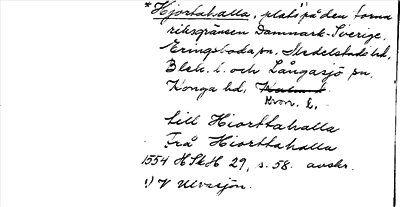 *Hjortahalla, plats¹⁾ på den forna
riksgränsen Danmark-Sverige,
Eringsboda sn, Medelstads hd,
Blek. l. och Långasjö sn.
Konga hd,
Kron. l.
till Hiorttahalla
Från Hiorttahalla
1554 HSkH 29, s. 58. avskr.
1) V Ulvasjön.